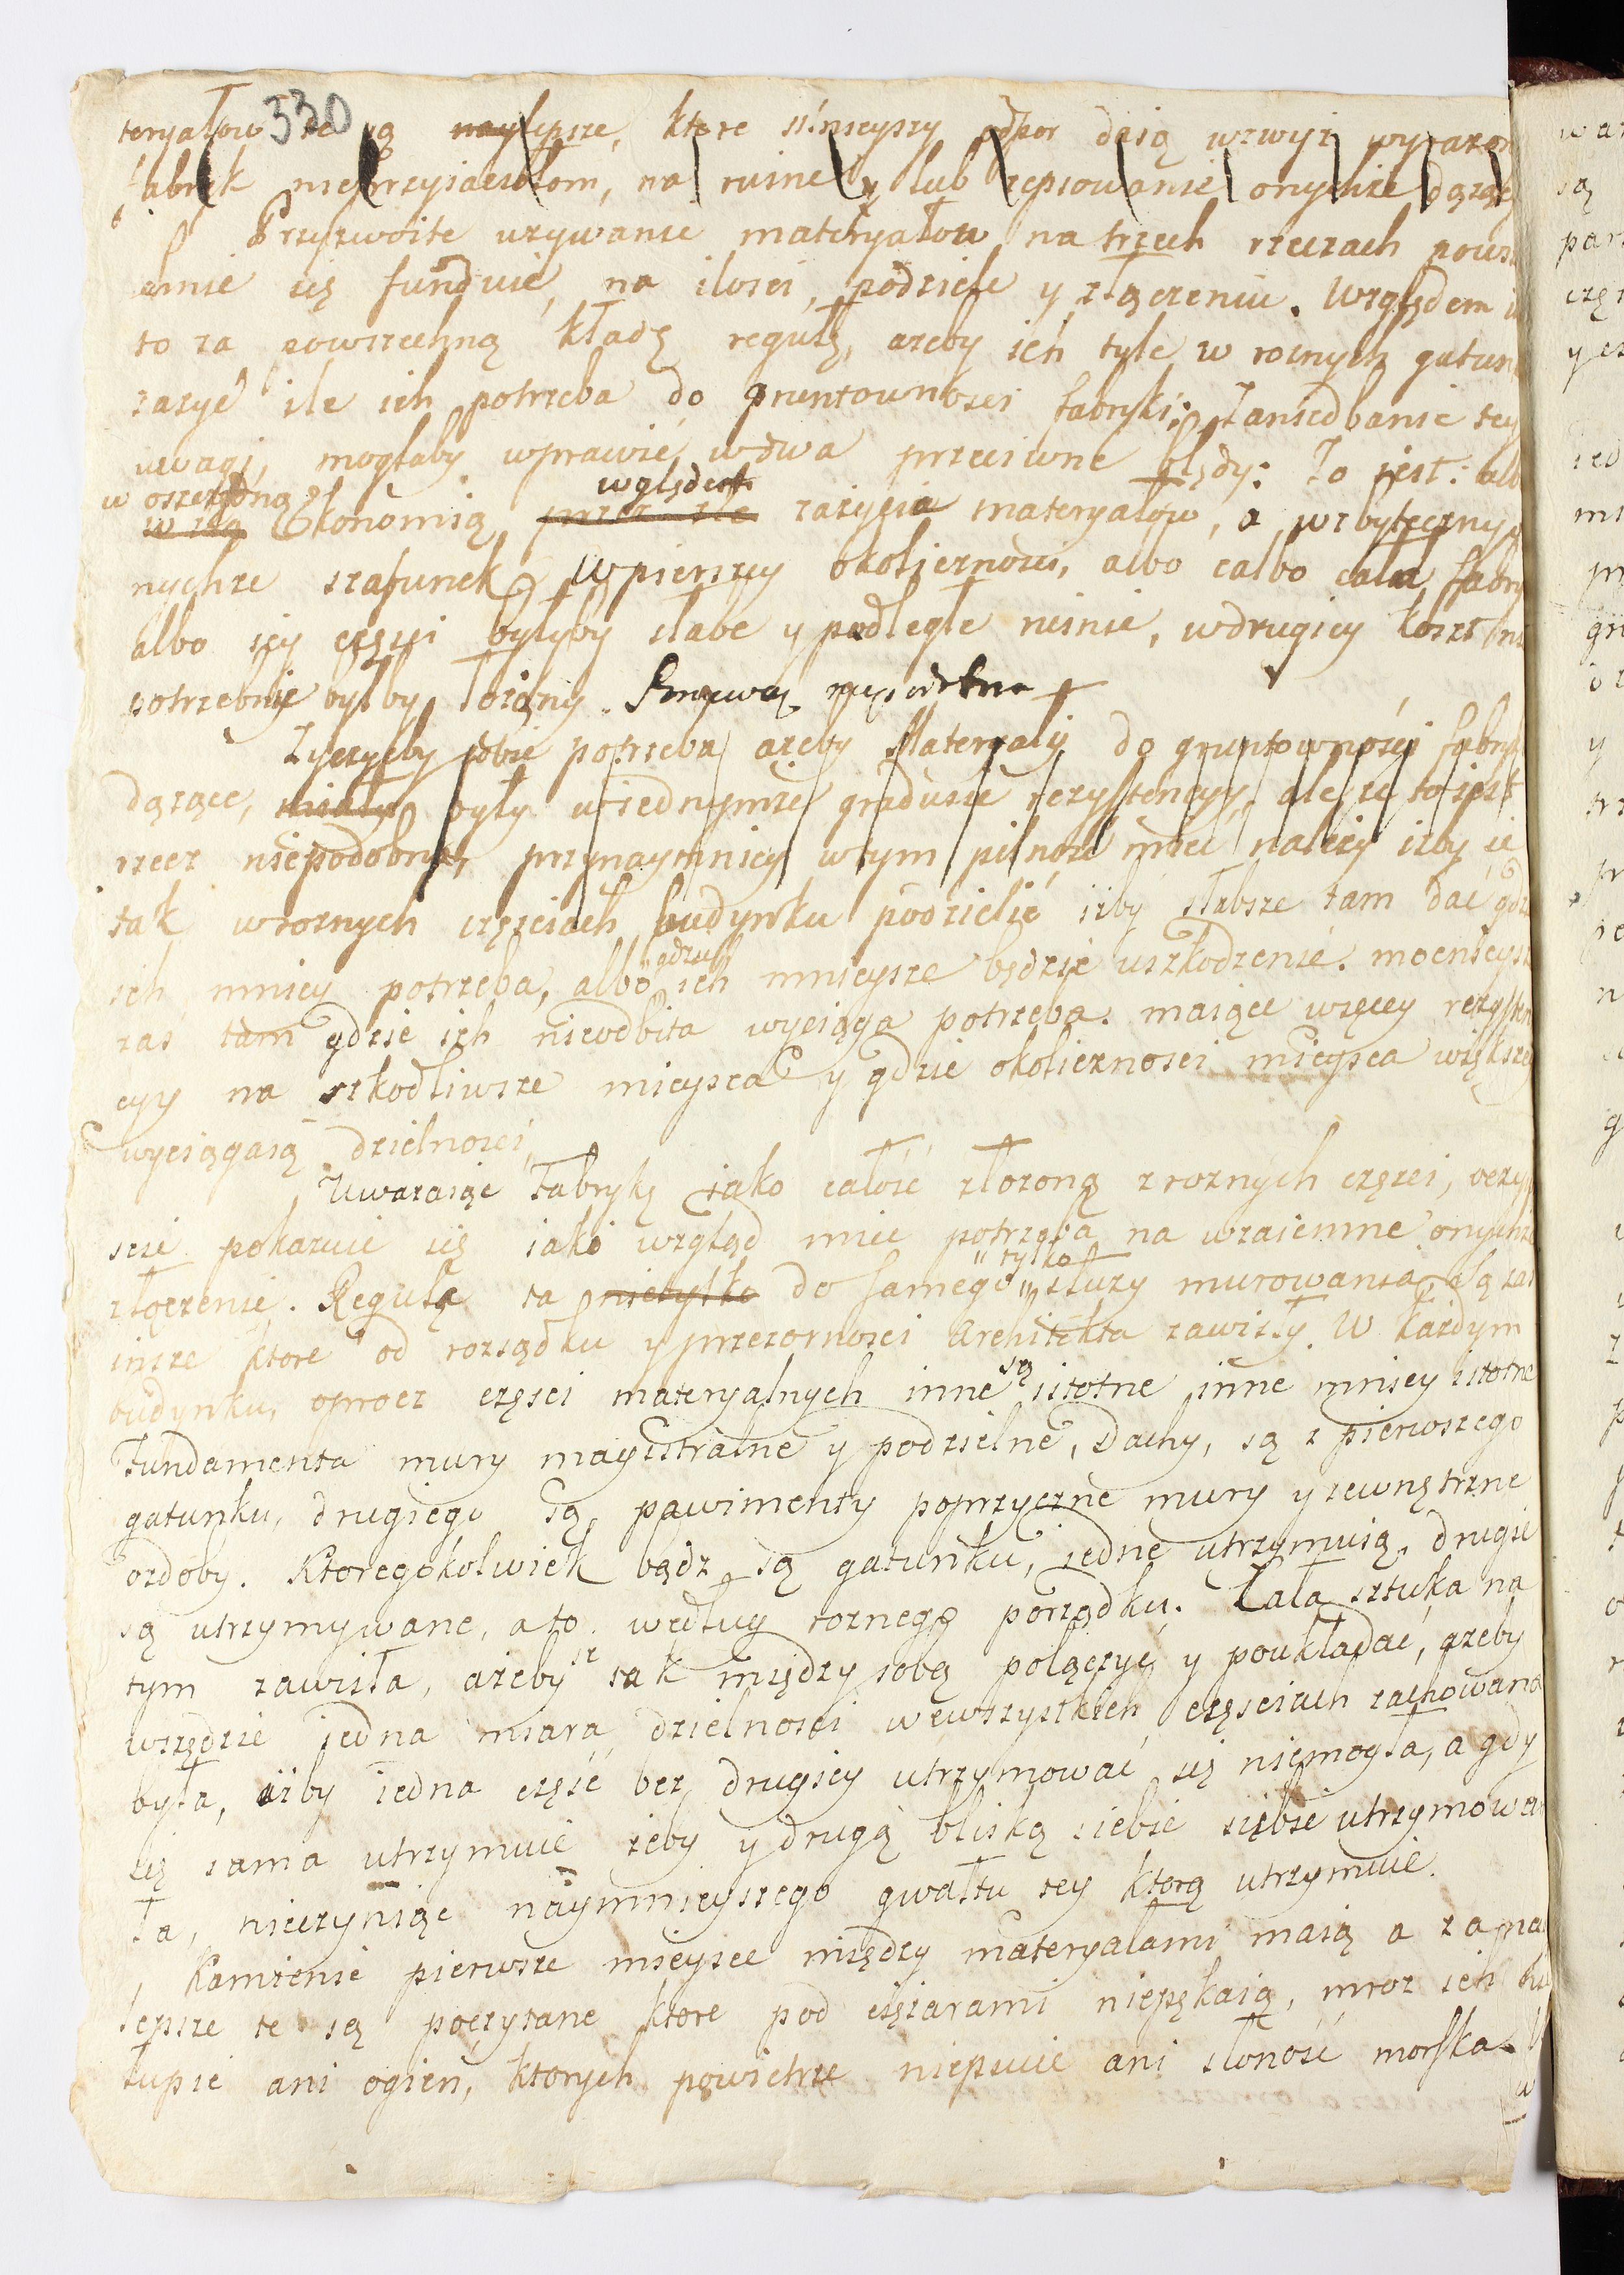 330
teryałow te są naylepsze, ktore silnieyszy odpor daią wzwyz wyrazon
fabryk nieprzyiaciołom, na ruinę, lub zepsowanie onychze dążąc
Przyzwoite uzywanie materyałow na trzech rzeczach powsz
emie się funduie, na ilosci, podziele y złączeniu. Względem i
to za powszechną kładę regułę, azeby ich tyle w roznych gatun
zazyć ile ich potrzeba do gruntownosci fabryki; Zaniedbanie tey
uwagi, mogłaby wprawić w dwa przeciwne błędy: To jest: alb
w oszczędną względem
w złą Ekonomią przez złe zazycia materyałow, a w zbyteczny
nychze szafunek. W pierszey okolicznosci, albo calbo cała fabry
albo iey części byłyby słabe y podległe ruinie, w drugiey koszt ni
potrzebnie byłby łożony.
Zyczyćby sobie potrzeba ażeby Materyały do gruntownosci fabryk
dążące, miały były w iednymze gradusie rezystencyy, ale ze to iest
rzecz niepodobna, przynaymniey w tym pilność mieć należy iżby ie
tak w roznych częsciach budynku podzielić iżby słabsze tam dać gdzie
gdzie
ich mniey potrzeba, albo ich mnieysze będzie uszkodzenie. mocnieysze
zas tam gdzie ich nieodbita wyciąga potrzeba. maiące więcey rezysten
cyy na szkodliwsze mieysca y gdzie okolicznosci mieysca większey
wyciągaią dzielnosci.
Uwazaiąc Fabrykę iako całość złozoną z roznych części, oczy
scie pokazuie się iaki wzgląd mieć potrzeba na wzaiemne onychze
tylko
złączenie. Reguła ta nietylko do samego służy murowania. Są zaś
insze ktore od rozsądku y przezornosci Architekta zawisły. W każdym
są
budynku, oprocz części materyalnych inne istotne inne mniey istotne
Fundamenta mury magistralne y podzielne, Dachy, są z pierwszego
gatunku, drugiego Są, pawimenty poprzyczne mury y zewnętrzne
ozdoby. Ktoregokolwiek bądz są gatunku, iedne utrzymuią, drugie
są utrzymywane, a to według roznego porządku. Cała sztuka na
tym zawisła, ażeby ie tak między sobą połączyć y poukładać, ażeby
wszędzie iedna miara dzielnosci we wszystkich częsciach zachowana
była, iżby iedna część bez drugiey utrzymować się niemogła, a gdy
się sama utrzymuie żeby y drugą bliską siebie siebie utrzymowa
ła, nieczyniąc naymnieyszego gwałtu tey ktorą utrzymuie.
Kamienie pierwsze mieysce między materyałami maią a za nay
lepsze te są poczytane ktore pod ciężarami niepękaią, mroz ich nie
łupie ani ogień, ktorych powietrze niepsuie ani słoność morska.